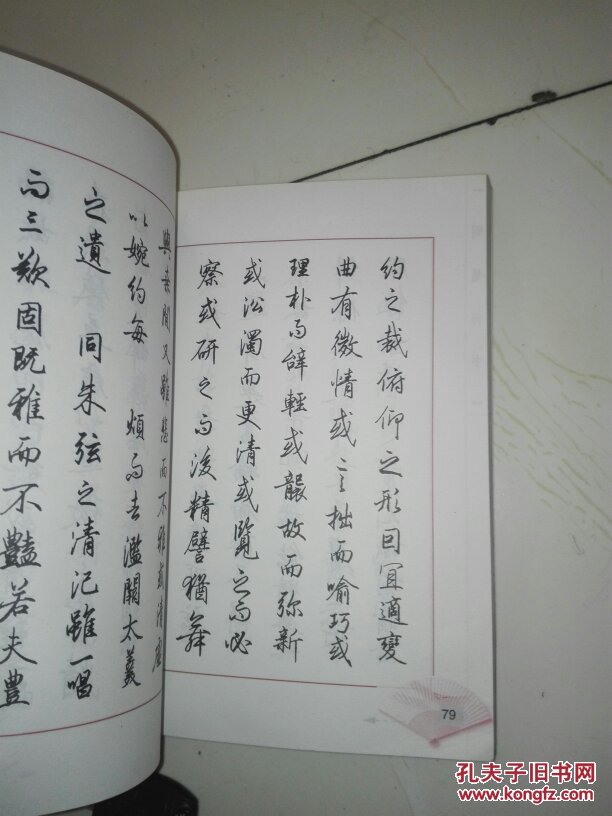 與桑間又雖悲而不雅或清虛
以婉約每煩而去濫闕太羹
之遺同朱弦之清汜雖一唱
而三歎固既雅而不豔若夫豐
約之裁俯仰之形因宜適變
曲有微情或言拙而喻巧或
理朴而辭輕或襲故而弥新
或沿濁而更清或覽之而必
察或研之而後精譬猶舞
79
孔夫子旧书网
www.kongfz.com